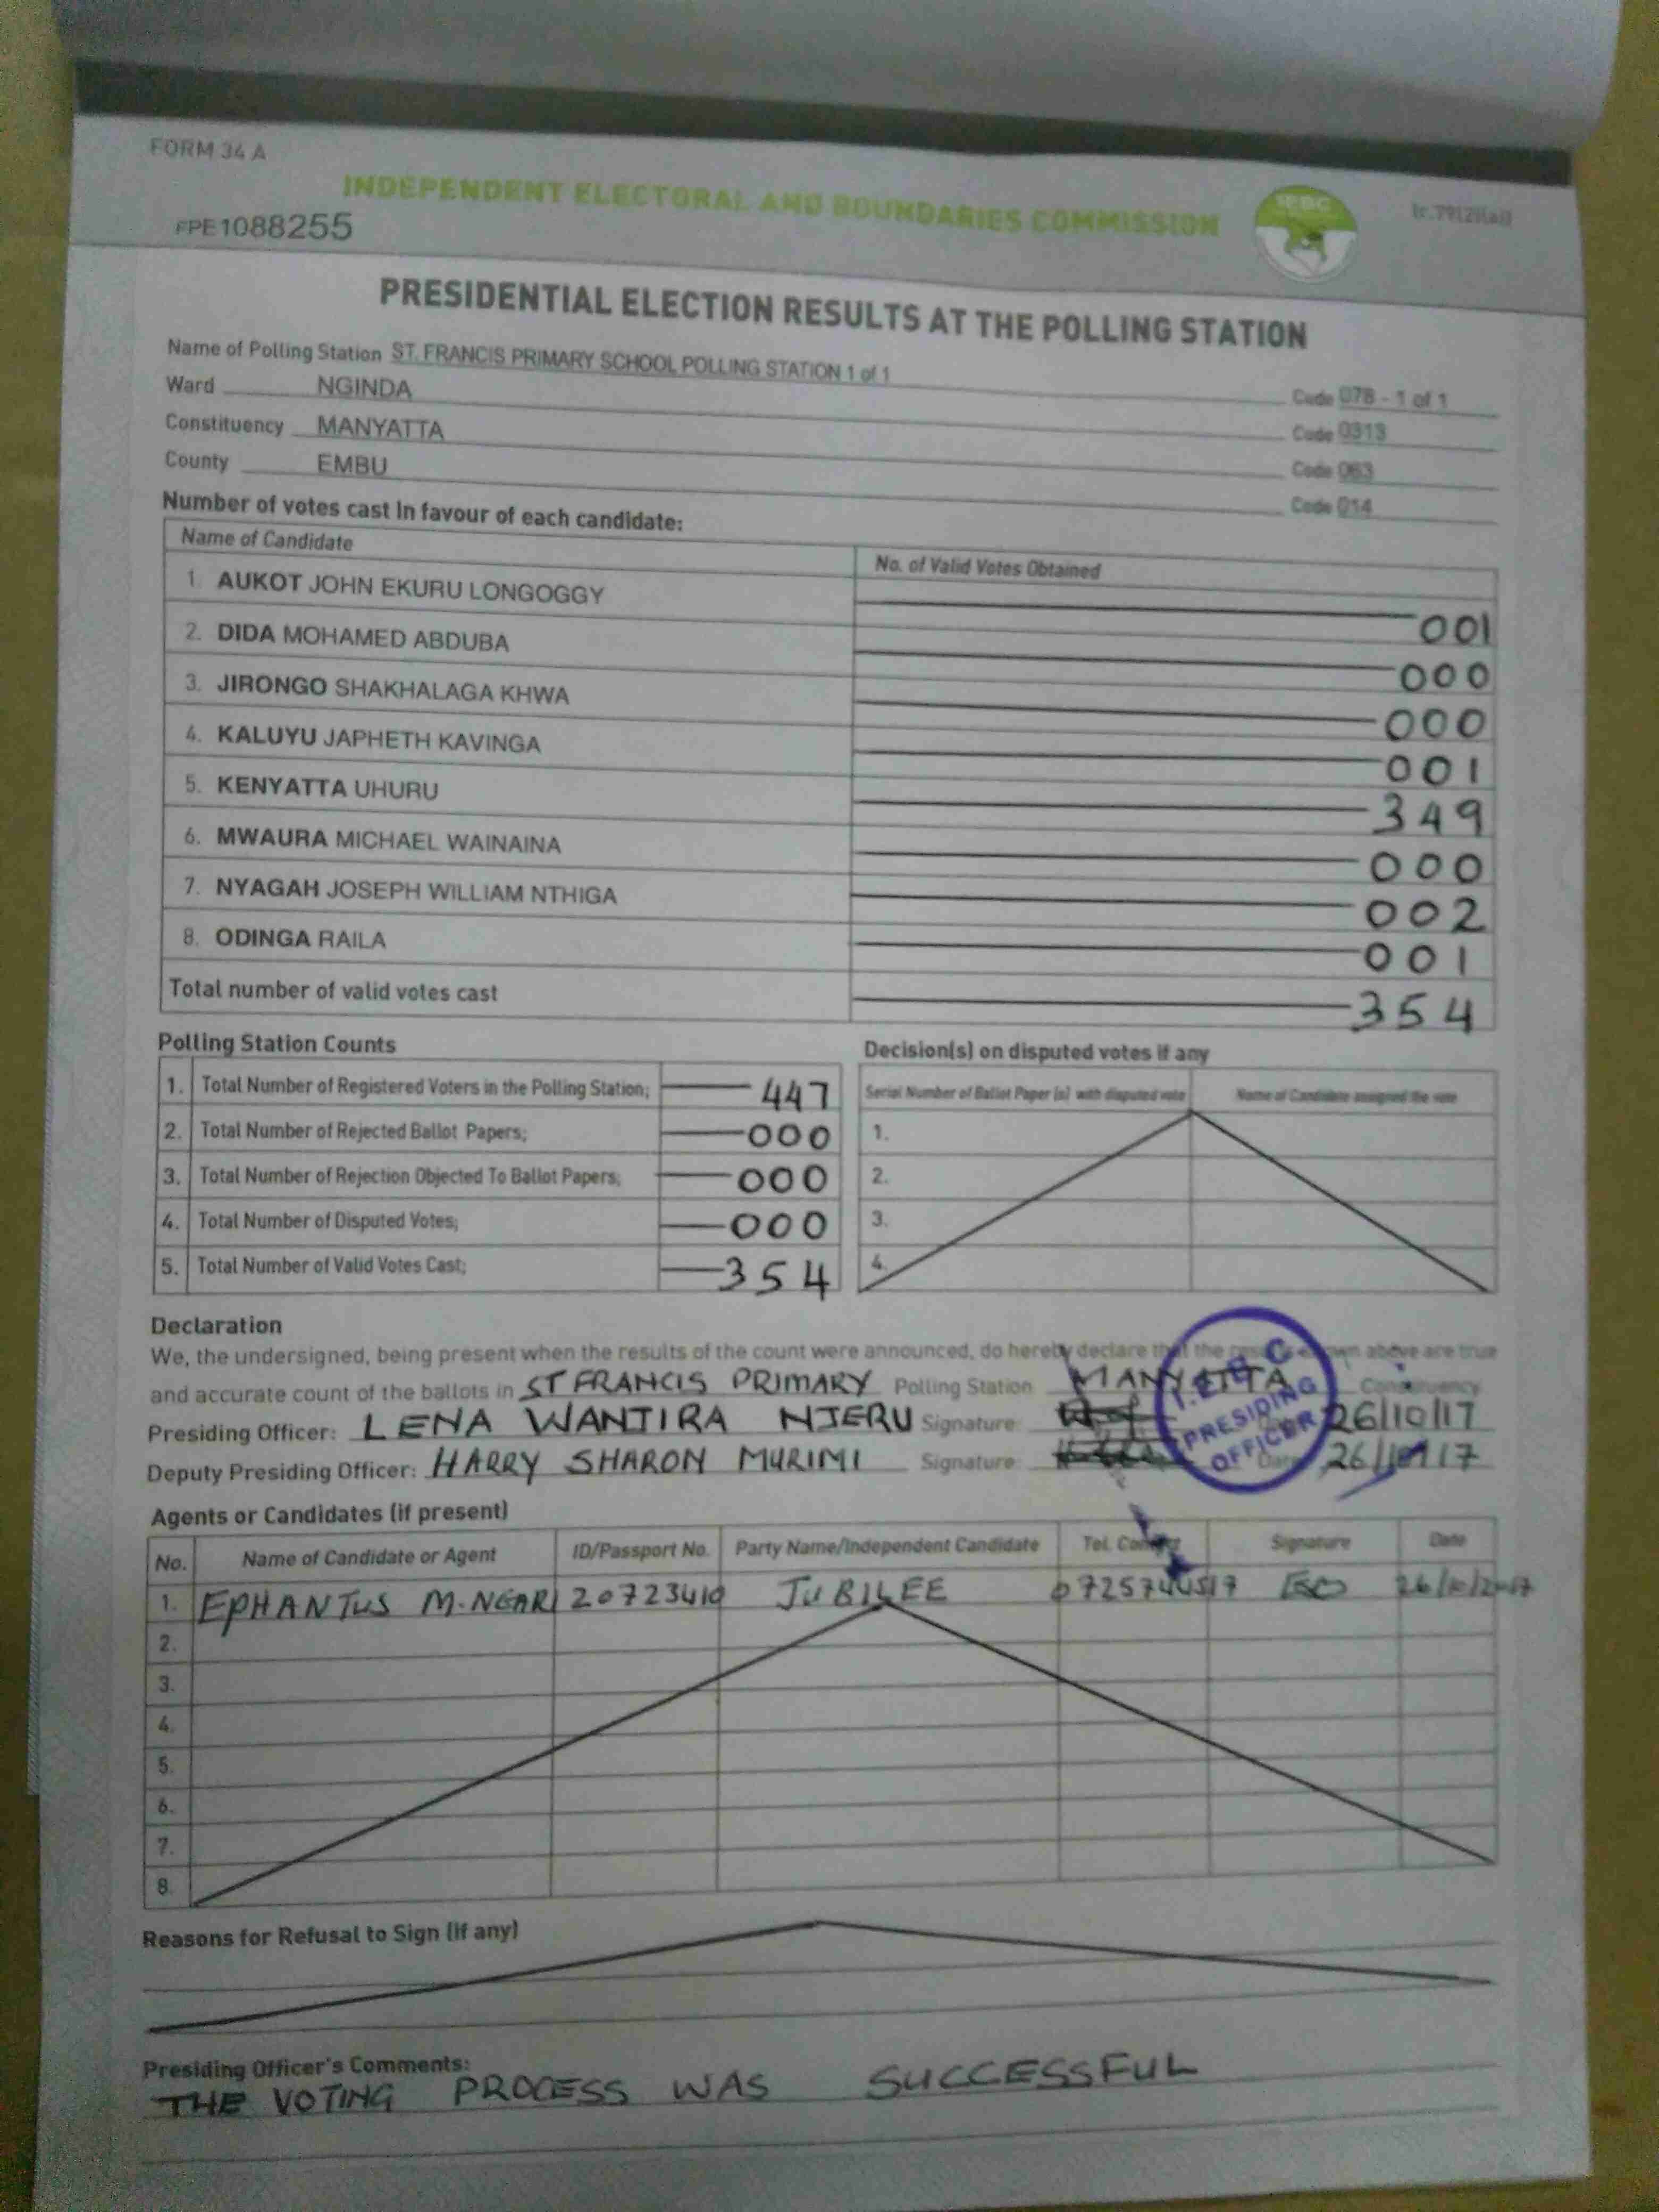 FORM 34 A
INDEPENDENT ELECTORAL AND BOUNDARIES COMMISSION
IEBC
FPE1088255
PRESIDENTIAL ELECTION RESULTS AT THE POLLING STATION
Name of Polling Station ST. FRANCIS PRIMARY SCHOOL POLLING STATION 1 of 1 Code 078 - 1 of 1
Ward NGINDA Code 0313
Constituency MANYATTA Code 063
County EMBU Code 014
Number of votes cast in favour of each candidate:
Name of Candidate No. of Valid Votes Obtained
1. AUKOT JOHN EKURU LONGOGGY 001
2. DIDA MOHAMED ABDUBA 000
3. JIRONGO SHAKHALAGA KHWA 000
4. KALUYU JAPHETH KAVINGA 001
5. KENYATTA UHURU 349
6. MWAURA MICHAEL WAINAINA 000
7. NYAGAH JOSEPH WILLIAM NTHIGA 002
8. ODINGA RAILA 001
Total number of valid votes cast 354
Polling Station Counts
1. Total Number of Registered Voters in the Polling Station; 447
2. Total Number of Rejected Ballot Papers; 000
3. Total Number of Rejection Objected To Ballot Papers; 000
4. Total Number of Disputed Votes; 000
5. Total Number of Valid Votes Cast; 354
Decision(s) on disputed votes if any
Serial Number of Ballot Paper (s) with disputed vote Name of Candidate assigned the vote
1.
2.
3.
4.
Declaration
We, the undersigned, being present when the results of the count were announced, do hereby declare that the results shown above are true
and accurate count of the ballots in ST FRANCIS PRIMARY Polling Station MANYATTA Constituency
Presiding Officer: LENA WANJIRA NJERU Signature: 26/10/17
Deputy Presiding Officer: HARRY SHARON MURIMI Signature: Date 26/10/17
I.E.B.C
PRESIDING
OFFICER
Agents or Candidates (if present)
No. Name of Candidate or Agent ID/Passport No. Party Name/Independent Candidate Tel. Contact Signature Date
1. EPHANTUS M. NGARI 20723410 JUBILEE 26/10/2017
2.
3.
4.
5.
6.
7.
8.
Reasons for Refusal to Sign (if any)
Presiding Officer's Comments:
THE VOTING PROCESS WAS SUCCESSFUL